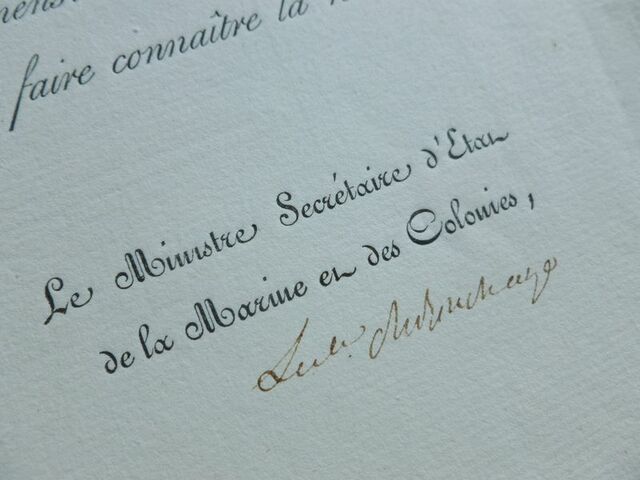 faire connaître la
Le Ministre Secrétaire d'Etat
de la Marine et des Colonies,